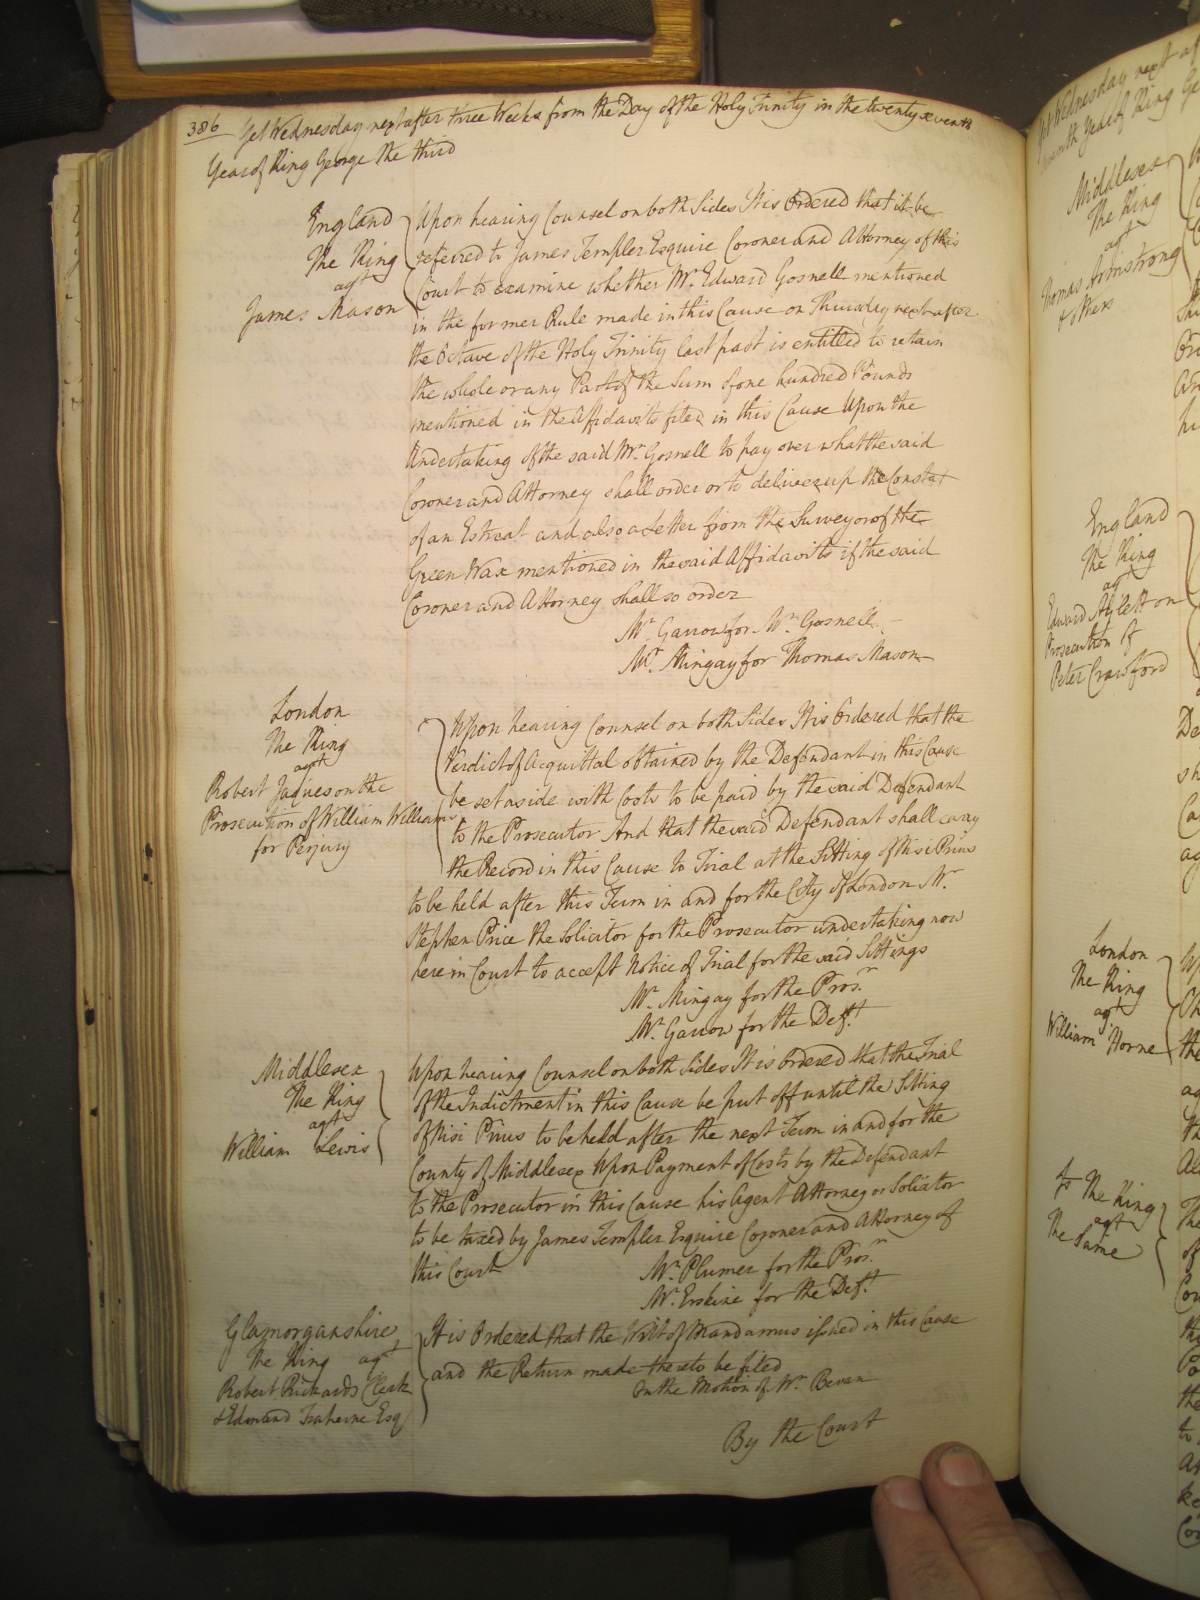 386 Yet Wednesday next after three Weeks from the Day of the Holy Trinity in the twenty seventh
Year of King George the third
England
The King
agt
James Mason
Upon hearing Counsel on both Sides It is Ordered that it be
referred to James Templer Esquire Coroner and Attorney of this
Court to examine whether Mr. Edward Gosnell mentioned
in the former Rule made in this Cause on Thursday next after
the Octave of the Holy Trinity last past is entitled to retain
the whole or any Part of the Sum of one hundred Pounds
mentioned in the Affidavits filed in this Cause Upon the
Undertaking of the said Mr. Gosnell to pay over what the said
Coroner and Attorney shall order or to deliver up the Constat
of an Estreat and also a Letter from the Surveyor of the
Green Wax mentioned in the said Affidavits if the said
Coroner and Attorney shall so order
Mr. Garrow for Mr. Gosnell
Mr. Mingay for Thomas Mason
London
The King
agt
Robert Jaques on the
Prosecution of William Williams
for Perjury
Upon hearing Counsel on both Sides It is Ordered that the
Verdict of Acquittal obtained by the Defendant in this Cause
be set aside with Costs to be paid by the said Defendant
to the Prosecutor And that the said Defendant shall carry
the Record in this Cause to Trial at the Sitting of Nisi Prius
to be held after this Term in and for the City of London Mr.
Stephen Price the Solicitor for the Prosecutor undertaking now
here in Court to accept Notice of Trial for the said Sittings
Mr. Mingay for the Prosr.
Mr. Garrow for the Deft.
Middlesex
The King
agt
William Lewis
Upon hearing Counsel on both Sides It is Ordered that the Trial
of the Indictment in this Cause be put off until the Sitting
of Nisi Prius to be held after the next Term in and for the
County of Middlesex Upon Payment of Costs by the Defendant
to the Prosecutor in this Cause his Agent Attorney or Solicitor
to be taxed by James Templer Esquire Coroner and Attorney of
this Court
Mr. Plumer for the Prosr.
Mr. Erskine for the Deft.
Glamorganshire
The King agt
Robert Rickards Clerk
& Edmund Traherne Esq
It is Ordered that the Writ of Mandamus issued in this Cause
and the Return made thereto be filed
On the Motion of Mr. Bevan
By the Court
Yet Wednesday next
seventh Year of King
Middlesex
The King
agt
Thomas Armstrong
& others
England
The King
agt
Edward Aylett on
Prosecution of
Peter Crawford
London
The King
agt
William Horne
The King
agt
The Same